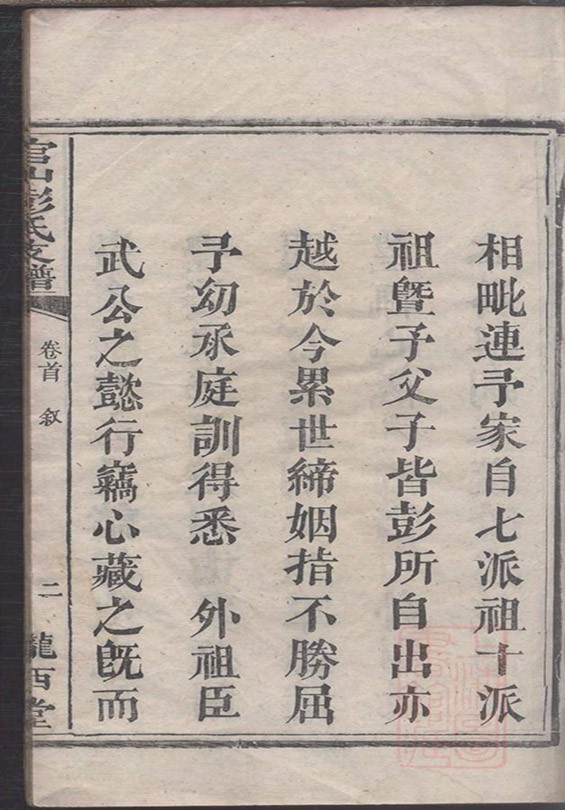 相毗連予家自七派祖十派
祖暨予父子皆彭所自出亦
越於今累世締姻指不勝屈
予幼承庭訓得悉 外祖臣
武公之懿行竊心藏之旣而
官山彭氏支譜
卷首 敘
二
隴西堂